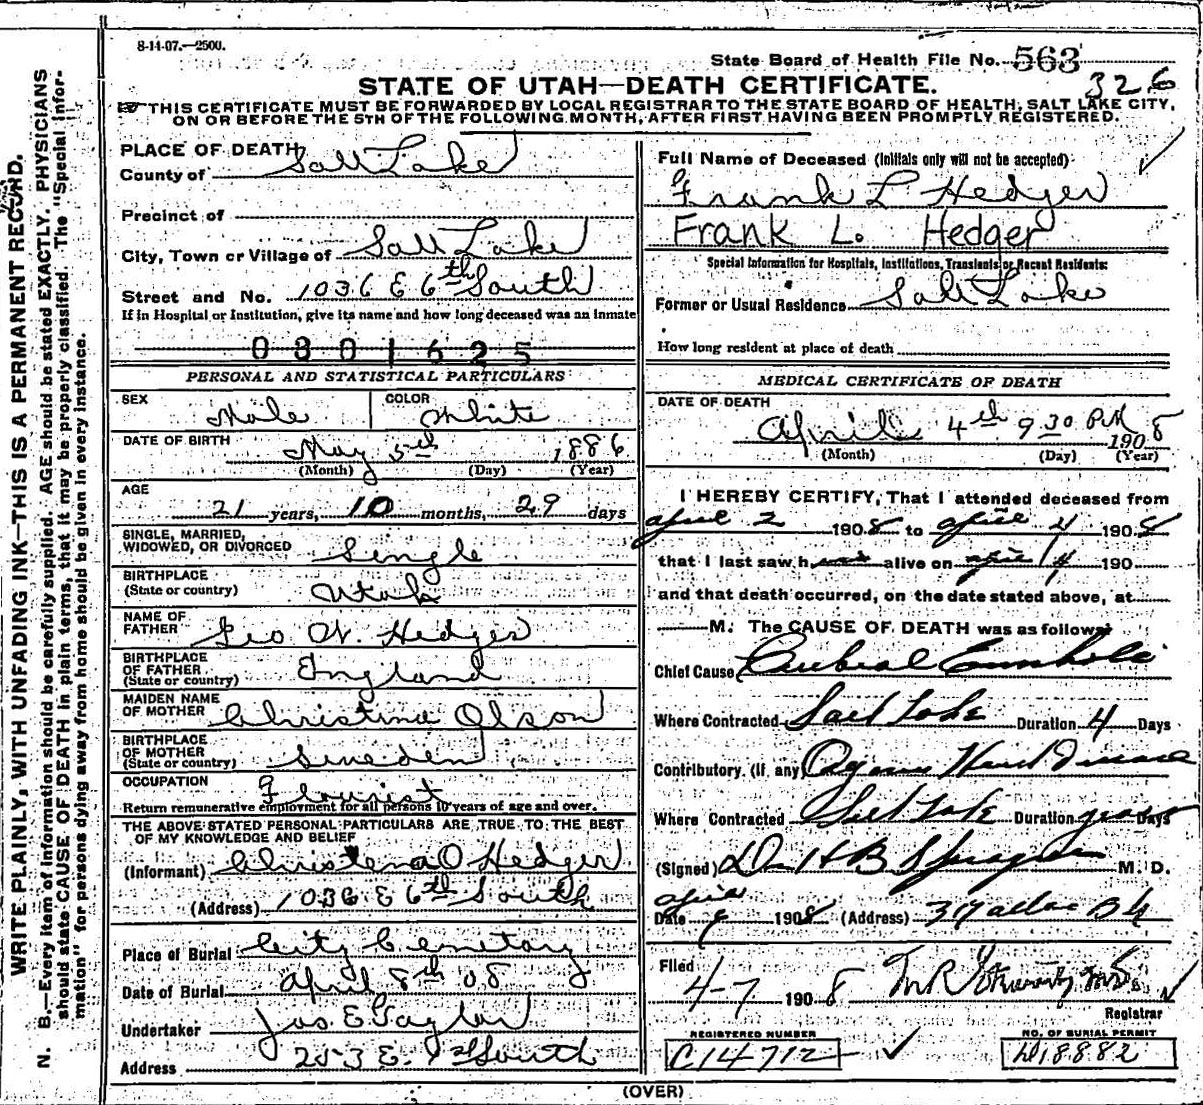 8-14-07.—2500.
State Board of Health File No. 563
326
STATE OF UTAH—DEATH CERTIFICATE.
THIS CERTIFICATE MUST BE FORWARDED BY LOCAL REGISTRAR TO THE STATE BOARD OF HEALTH, SALT LAKE CITY,
ON OR BEFORE THE 5TH OF THE FOLLOWING MONTH, AFTER FIRST HAVING BEEN PROMPTLY REGISTERED.
WRITE PLAINLY, WITH UNFADING INK—THIS IS A PERMANENT RECORD.
N. B.—Every item of information should be carefully supplied. AGE should be stated EXACTLY. PHYSICIANS
should state CAUSE OF DEATH in plain terms, that it may be properly classified. The "Special Infor-
mation" for persons dying away from home should be given in every instance.
PLACE OF DEATH
County of Salt Lake
Precinct of
City, Town or Village of Salt Lake
Street and No. 1036 E 6th South
If in Hospital or Institution, give its name and how long deceased was an inmate
0801625
PERSONAL AND STATISTICAL PARTICULARS
SEX Male COLOR White
DATE OF BIRTH May 5th 1886
(Month) (Day) (Year)
AGE
21 years, 10 months, 29 days
SINGLE, MARRIED,
WIDOWED, OR DIVORCED Single
BIRTHPLACE
(State or country) Utah
NAME OF
FATHER Geo W. Hedger
BIRTHPLACE
OF FATHER England
(State or country)
MAIDEN NAME
OF MOTHER Christina Olson
BIRTHPLACE
OF MOTHER Sweden
(State or country)
OCCUPATION Flourist
Return remunerative employment for all persons 10 years of age and over.
THE ABOVE STATED PERSONAL PARTICULARS ARE TRUE TO THE BEST
OF MY KNOWLEDGE AND BELIEF
(Informant) Christena O Hedger
(Address) 1036 E 6th South
Place of Burial City Cemetary
Date of Burial April 8th 08
Undertaker Jos E Taylor
Address 253 E. 1st South
Full Name of Deceased (Initials only will not be accepted)
Frank L Hedger
Frank L. Hedger
Special Information for Hospitals, Institutions, Transients or Recent Residents:
Former or Usual Residence Salt Lake
How long resident at place of death
MEDICAL CERTIFICATE OF DEATH
DATE OF DEATH
April 4th 9 30 PM 1908
(Month) (Day) (Year)
I HEREBY CERTIFY, That I attended deceased from
April 2 1908 to April 4 1908
that I last saw h alive on April 4 190
and that death occurred, on the date stated above, at
M. The CAUSE OF DEATH was as follows:
Chief Cause
Where Contracted Salt Lake Duration 4 Days
Contributory (If any) Organic Heart Disease
Where Contracted Salt Lake Duration years Days
(Signed) Dr H B Sprague M. D.
Date April 1908 (Address)
Filed 4-7 1908
Registrar
REGISTERED NUMBER C14712
NO. OF BURIAL PERMIT D18882
(OVER)